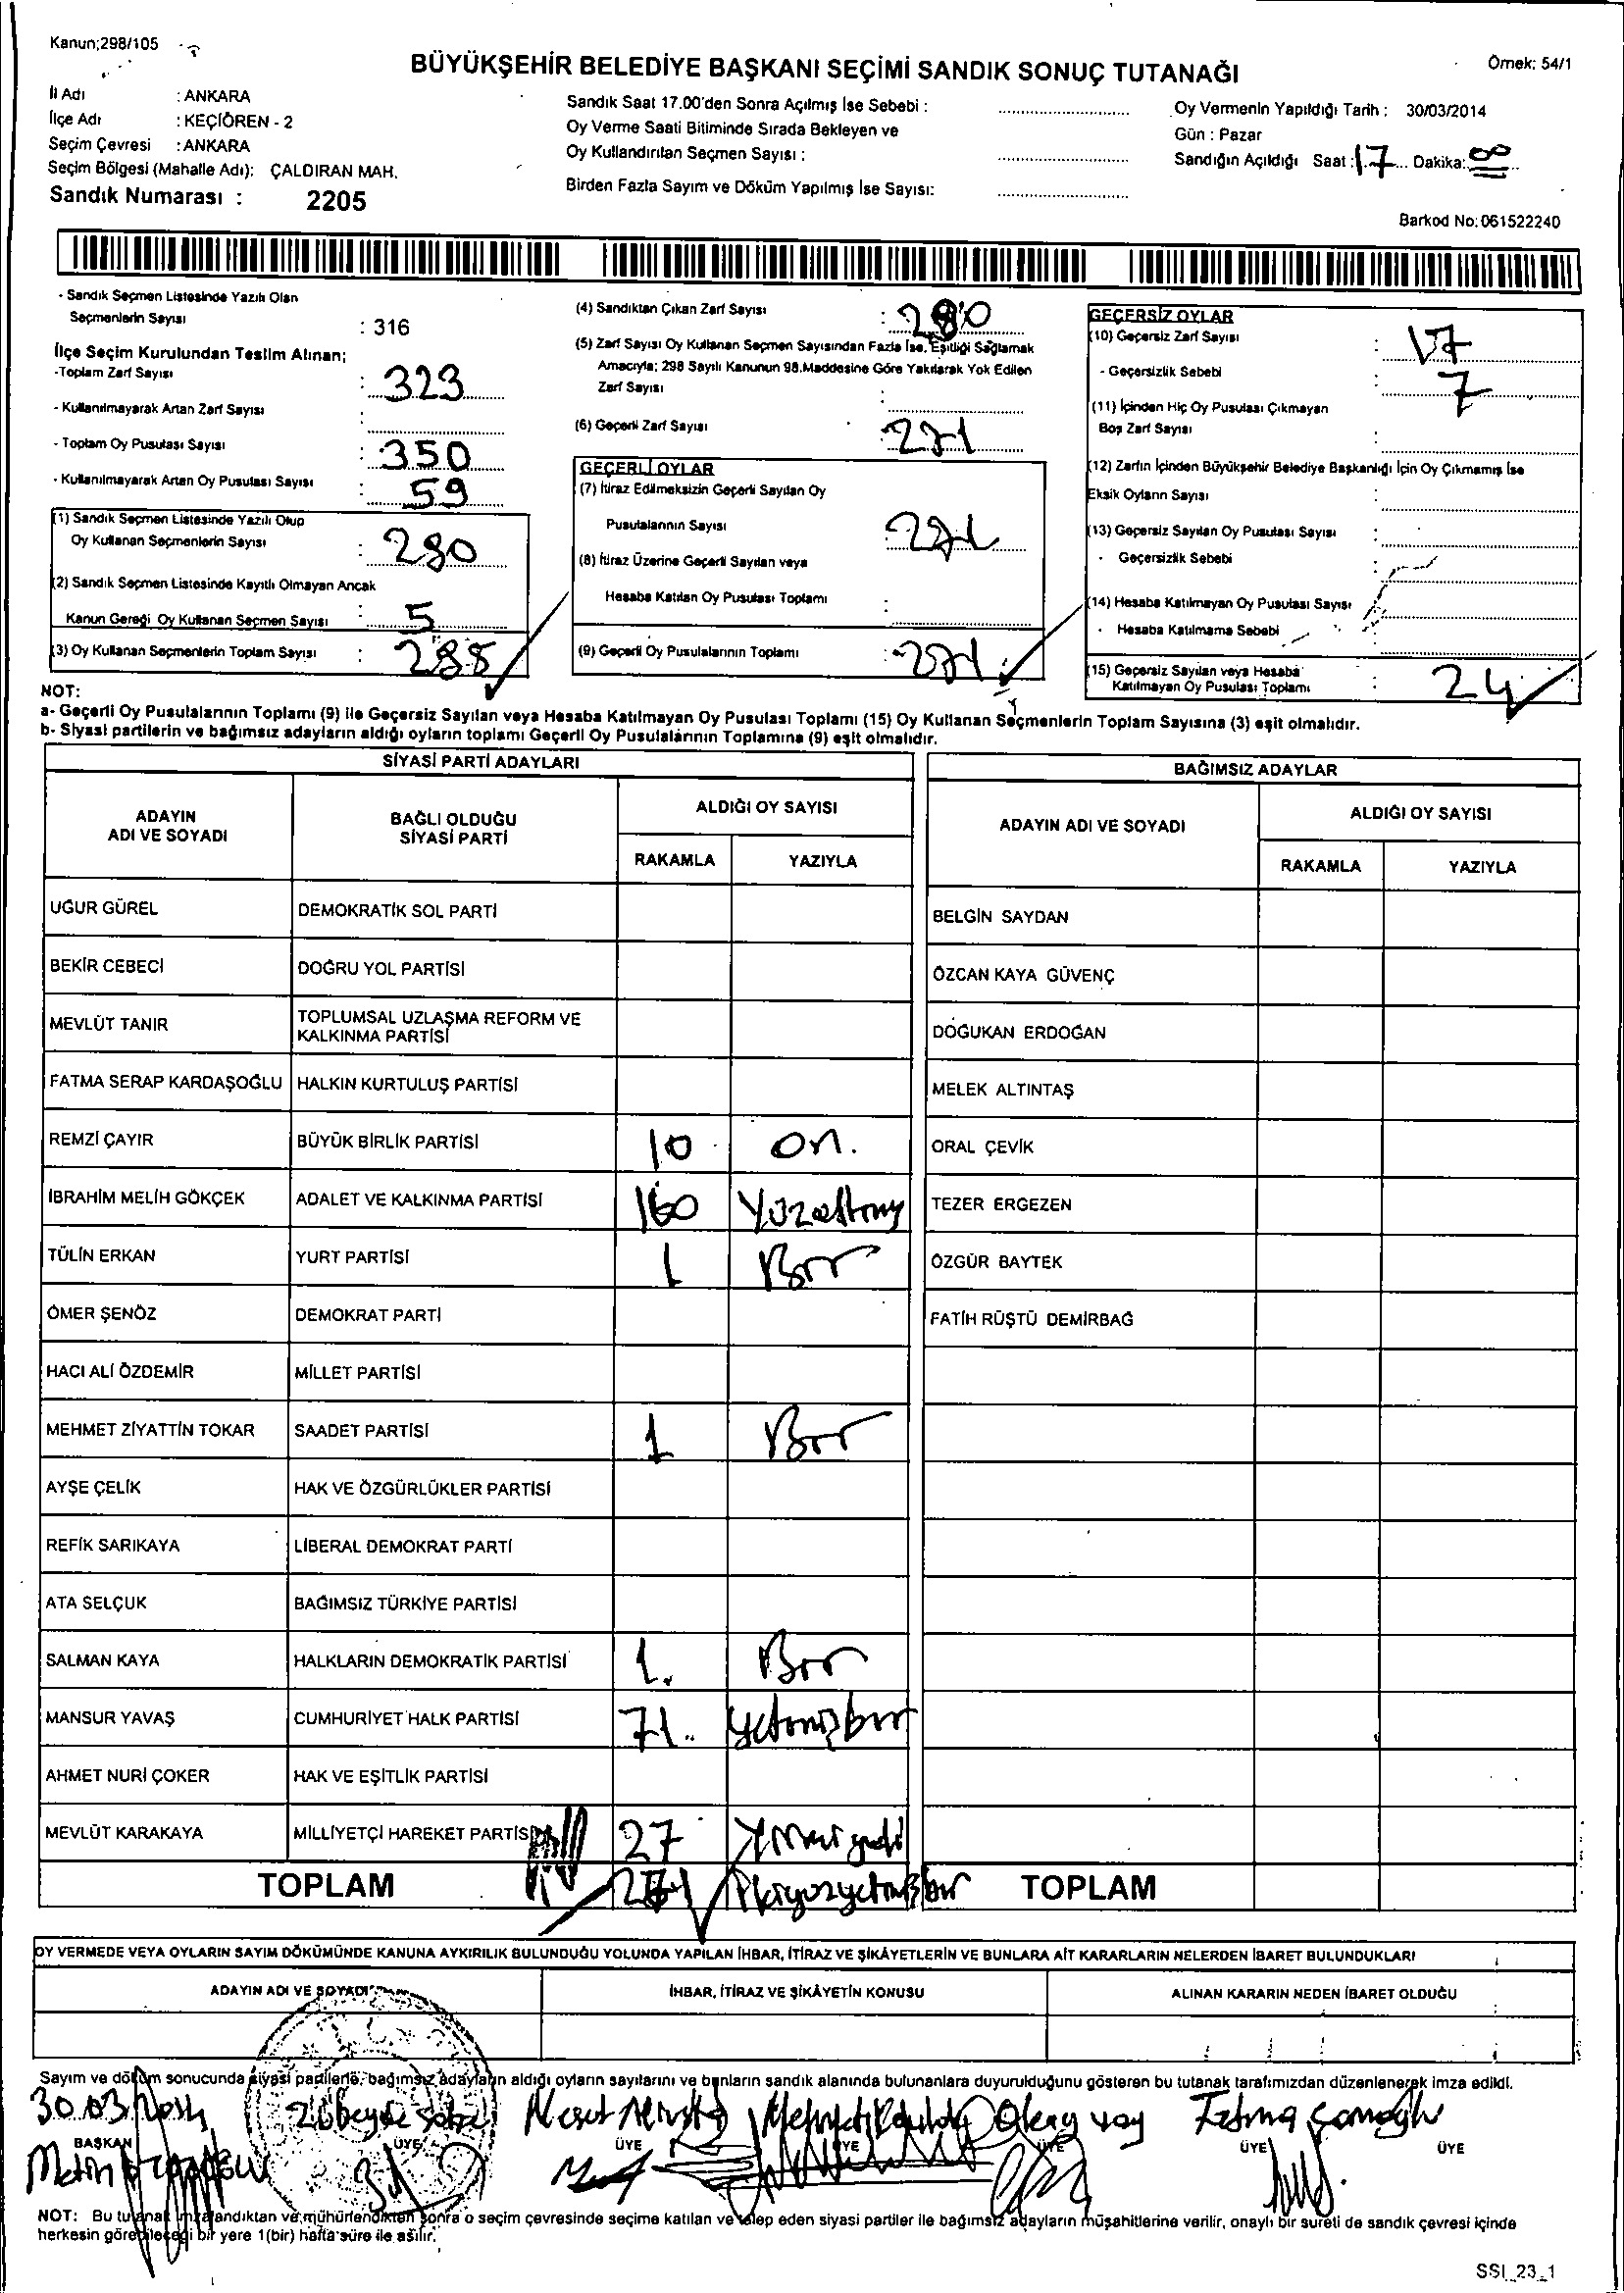 Kanun;298/105
BÜYÜKŞEHİR BELEDİYE BAŞKANI SEÇİMİ SANDIK SONUÇ TUTANAĞI
Örnek: 54/1
İl Adı : ANKARA
İlçe Adı : KEÇİÖREN - 2
Seçim Çevresi : ANKARA
Seçim Bölgesi (Mahalle Adı): ÇALDIRAN MAH.
Sandık Numarası : 2205
Sandık Saat 17.00'den Sonra Açılmış İse Sebebi :
Oy Verme Saati Bitiminde Sırada Bekleyen ve
Oy Kullandırılan Seçmen Sayısı :
Birden Fazla Sayım ve Döküm Yapılmış İse Sayısı:
Oy Vermenin Yapıldığı Tarih : 30/03/2014
Gün : Pazar
Sandığın Açıldığı Saat : 17 Dakika: 00
Barkod No: 061522240
- Sandık Seçmen Listesinde Yazılı Olan
Seçmenlerin Sayısı : 316
İlçe Seçim Kurulundan Teslim Alınan;
-Toplam Zarf Sayısı : 323
- Kullanılmayarak Artan Zarf Sayısı :
- Toplam Oy Pusulası Sayısı : 350
- Kullanılmayarak Artan Oy Pusulası Sayısı : 59
(1) Sandık Seçmen Listesinde Yazılı Olup
Oy Kullanan Seçmenlerin Sayısı : 280
(2) Sandık Seçmen Listesinde Kayıtlı Olmayan Ancak
Kanun Gereği Oy Kullanan Seçmen Sayısı : 5
(3) Oy Kullanan Seçmenlerin Toplam Sayısı : 285
(4) Sandıktan Çıkan Zarf Sayısı : 280
(5) Zarf Sayısı Oy Kullanan Seçmen Sayısından Fazla İse, Eşitliği Sağlamak
Amacıyla; 298 Sayılı Kanunun 98.Maddesine Göre Yakılarak Yok Edilen
Zarf Sayısı :
(6) Geçerli Zarf Sayısı : 271
GEÇERLİ OYLAR
(7) İtiraz Edilmeksizin Geçerli Sayılan Oy
Pusulalarının Sayısı : 271
(8) İtiraz Üzerine Geçerli Sayılan veya
Hesaba Katılan Oy Pusulası Toplamı :
(9) Geçerli Oy Pusulalarının Toplamı : 271
GEÇERSİZ OYLAR
(10) Geçersiz Zarf Sayısı : 17
- Geçersizlik Sebebi : 7
(11) İçinden Hiç Oy Pusulası Çıkmayan
Boş Zarf Sayısı :
(12) Zarfın İçinden Büyükşehir Belediye Başkanlığı İçin Oy Çıkmamış İse
Eksik Oyların Sayısı :
(13) Geçersiz Sayılan Oy Pusulası Sayısı :
- Geçersizlik Sebebi :
(14) Hesaba Katılmayan Oy Pusulası Sayısı
- Hesaba Katılmama Sebebi
(15) Geçersiz Sayılan veya Hesaba
Katılmayan Oy Pusulası Toplamı : 24
NOT:
a- Geçerli Oy Pusulalarının Toplamı (9) ile Geçersiz Sayılan veya Hesaba Katılmayan Oy Pusulası Toplamı (15) Oy Kullanan Seçmenlerin Toplam Sayısına (3) eşit olmalıdır.
b- Siyasi partilerin ve bağımsız adayların aldığı oyların toplamı Geçerli Oy Pusulalarının Toplamına (9) eşit olmalıdır.
SİYASİ PARTİ ADAYLARI
ADAYIN ADI VE SOYADI
BAĞLI OLDUĞU SİYASİ PARTİ
ALDIĞI OY SAYISI
RAKAMLA YAZIYLA
UĞUR GÜREL DEMOKRATİK SOL PARTİ
BEKİR CEBECİ DOĞRU YOL PARTİSİ
MEVLÜT TANIR TOPLUMSAL UZLAŞMA REFORM VE
KALKINMA PARTİSİ
FATMA SERAP KARDAŞOĞLU HALKIN KURTULUŞ PARTİSİ
REMZİ ÇAYIR BÜYÜK BİRLİK PARTİSİ 10 on.
İBRAHİM MELİH GÖKÇEK ADALET VE KALKINMA PARTİSİ 160 Yüzaltmış
TÜLİN ERKAN YURT PARTİSİ 1 Bir
ÖMER ŞENÖZ DEMOKRAT PARTİ
HACI ALİ ÖZDEMİR MİLLET PARTİSİ
MEHMET ZİYATTİN TOKAR SAADET PARTİSİ 1 Bir
AYŞE ÇELİK HAK VE ÖZGÜRLÜKLER PARTİSİ
REFİK SARIKAYA LİBERAL DEMOKRAT PARTİ
ATA SELÇUK BAĞIMSIZ TÜRKİYE PARTİSİ
SALMAN KAYA HALKLARIN DEMOKRATİK PARTİSİ 1. Bir
MANSUR YAVAŞ CUMHURİYET HALK PARTİSİ 71. Yetmişbir
AHMET NURİ ÇOKER HAK VE EŞİTLİK PARTİSİ
MEVLÜT KARAKAYA MİLLİYETÇİ HAREKET PARTİSİ 27 Yirmi yedi
TOPLAM 271 İkiyüzyetmişbir
BAĞIMSIZ ADAYLAR
ADAYIN ADI VE SOYADI
ALDIĞI OY SAYISI
RAKAMLA YAZIYLA
BELGİN SAYDAN
ÖZCAN KAYA GÜVENÇ
DOĞUKAN ERDOĞAN
MELEK ALTINTAŞ
ORAL ÇEVİK
TEZER ERGEZEN
ÖZGÜR BAYTEK
FATİH RÜŞTÜ DEMİRBAĞ
TOPLAM
OY VERMEDE VEYA OYLARIN SAYIM DÖKÜMÜNDE KANUNA AYKIRILIK BULUNDUĞU YOLUNDA YAPILAN İHBAR, İTİRAZ VE ŞİKÂYETLERİN VE BUNLARA AİT KARARLARIN NELERDEN İBARET BULUNDUKLARI
ADAYIN ADI VE SOYADI İHBAR, İTİRAZ VE ŞİKÂYETİN KONUSU ALINAN KARARIN NEDEN İBARET OLDUĞU
Sayım ve döküm sonucunda siyasi partilerle, bağımsız adayların aldığı oyların sayılarını ve bunların sandık alanında bulunanlara duyurulduğunu gösteren bu tutanak tarafımızdan düzenlenerek imza edildi.
30.03.2014
BAŞKAN ÜYE ÜYE ÜYE ÜYE ÜYE ÜYE
Metin
NOT: Bu tutanak imzalandıktan ve mühürlendikten sonra o seçim çevresinde seçime katılan ve talep eden siyasi partiler ile bağımsız adayların müşahitlerine verilir, onaylı bir sureti de sandık çevresi içinde
herkesin görebileceği bir yere 1(bir) hafta süre ile asılır.
SSI_23_1